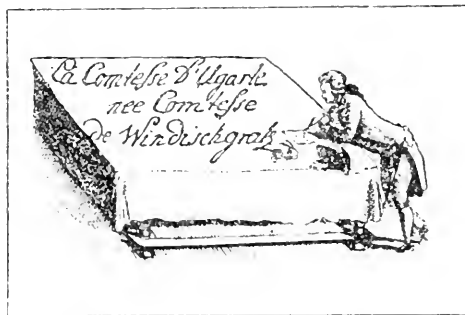 La Comtesse D'Ugarte
nee Comtesse
de Windischgratz